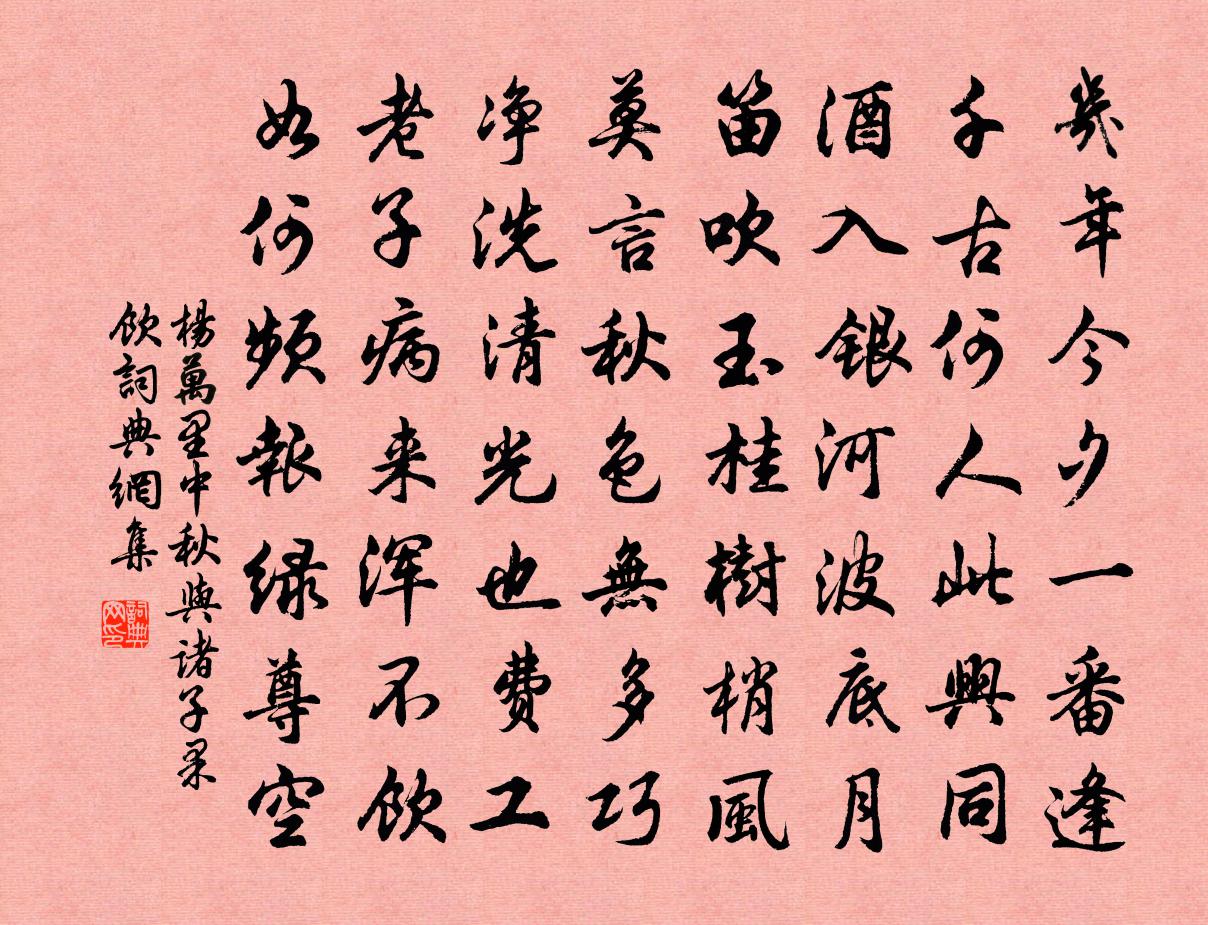 幾年今夕一番逢
千古何人此興同
酒入銀河波底月
笛吹玉桂樹梢風
莫言秋色無多巧
净洗清光也費工
老子病来浑不飲
如何頻報绿尊空
楊萬里中秋與诸子果
飲詞典網集
詞典网印